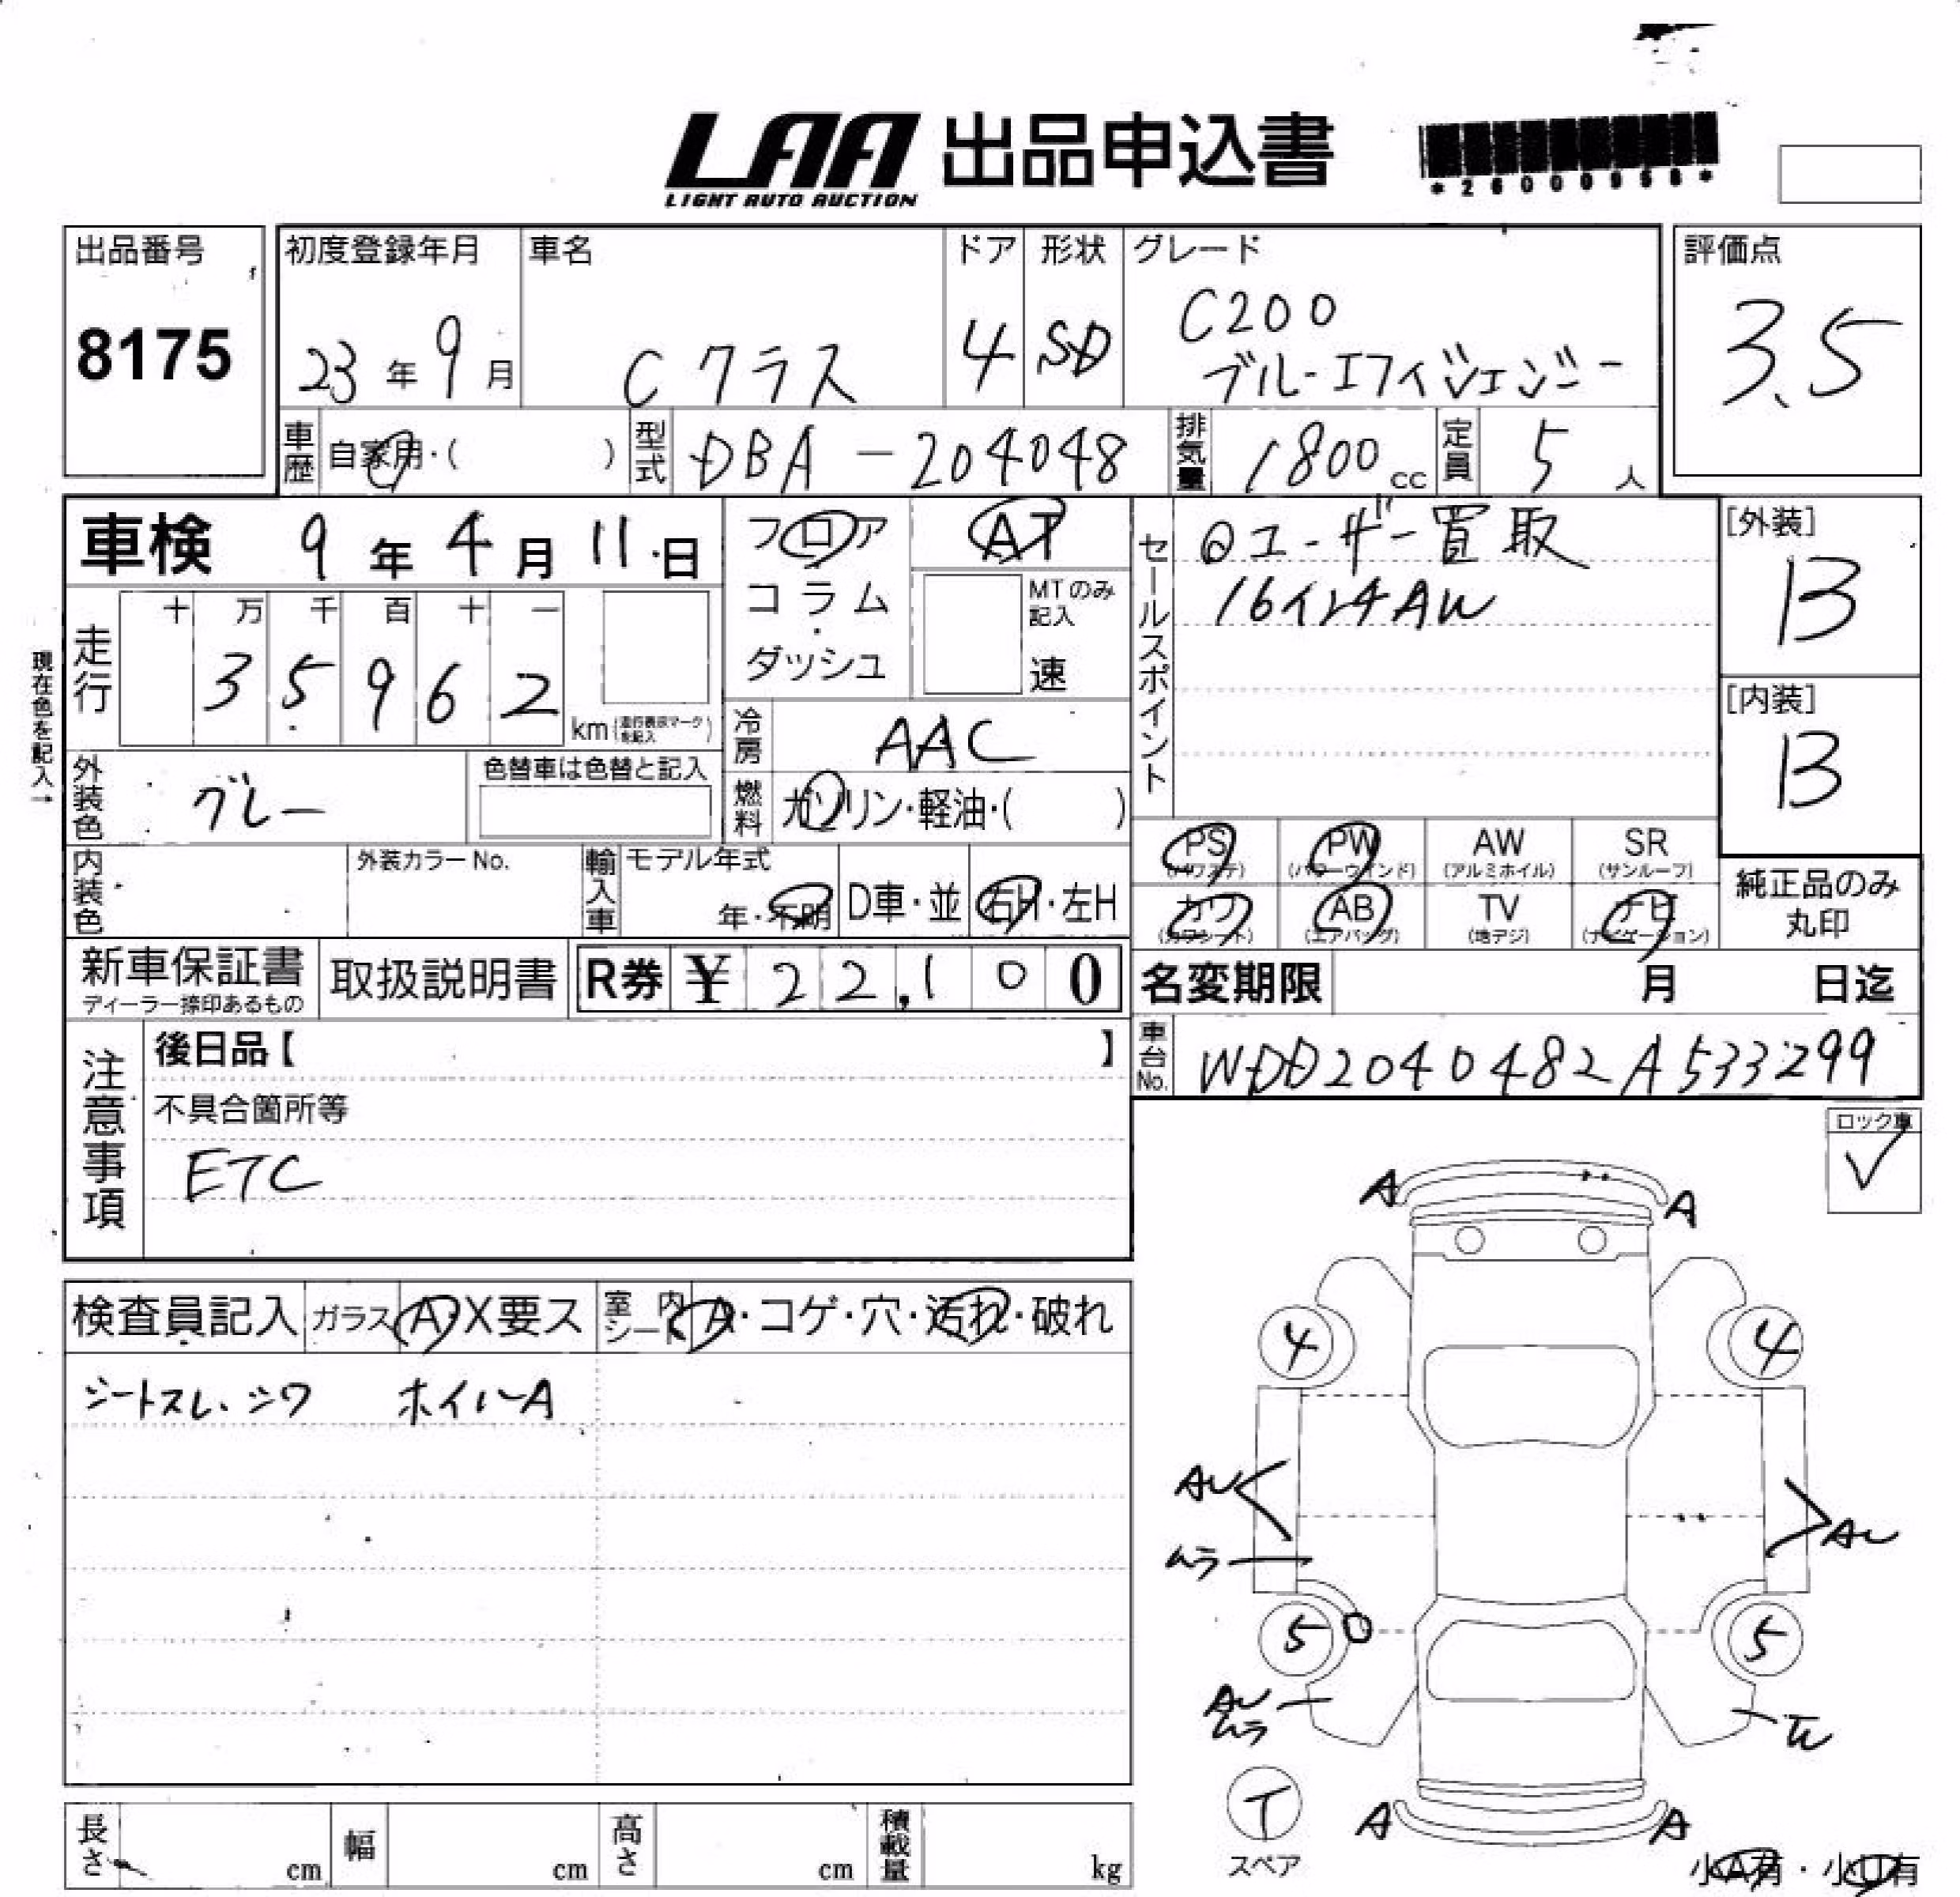 LAA 出品申込書
LIGHT AUTO AUCTION
*26000958*
出品番号
8175
初度登録年月
23年9月
車名
Cクラス
ドア
4
形状
SD
グレード
C200
ブルーエフィシェンジー
評価点
3.5
車歴
自家用・( )
型式
DBA-204048
排気量
1800cc
定員
5人
車検 9年4月11日
フロア
コラム
・
ダッシュ
AT
MTのみ
記入
速
セールスポイント
@ユーザー買取
16インチAW
[外装]
B
[内装]
B
現在色を記入→
走行
十 万 千 百 十 一
3 5 9 6 2
km(走行表示マークを記入)
冷房
AAC
外装色
グレー
色替車は色替と記入
燃料
ガソリン・軽油・( )
PS
(パワステ)
PW
(パワーウインド)
AW
(アルミホイル)
SR
(サンルーフ)
カワ
(カワシート)
AB
(エアバッグ)
TV
(地デジ)
ナビ
(ナビゲーション)
純正品のみ
丸印
内装色
外装カラーNo.
輸入車
モデル年式
年・不明
D車・並
右H・左H
新車保証書
ディーラー捺印あるもの
取扱説明書
R券 ¥ 22,100
名変期限 月 日迄
車台No.
WDD2040482A533299
注意事項
後日品【 】
不具合箇所等
ETC
ロック車
✓
検査員記入
ガラス
A・X要ス
室内
シート
A・コゲ・穴・汚れ・破れ
シートスレ、シワ ホイルA
A
A
4
4
AU
AU
ムラ
5
5
AU
ムラ
T
スペア
A
A
小A有・小U有
長さ cm
幅 cm
高さ cm
積載量 kg